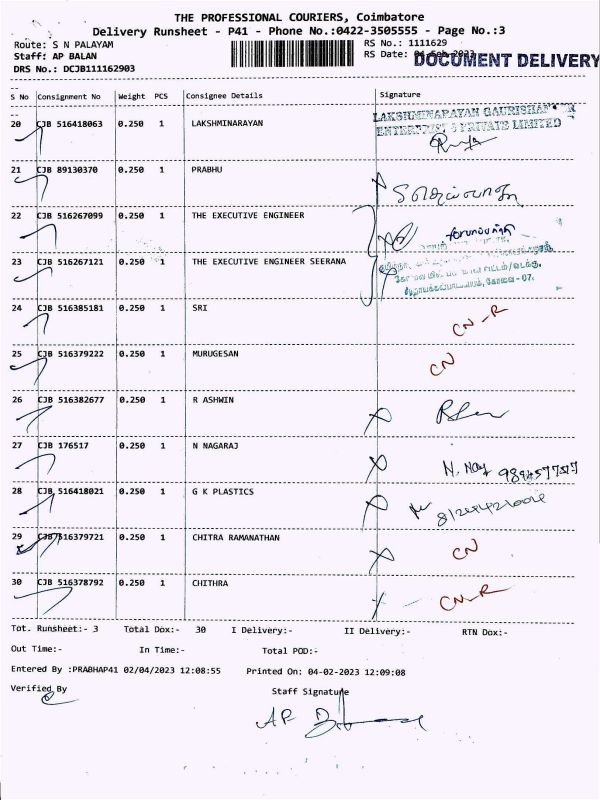 THE PROFESSIONAL COURIERS, Coimbatore
Delivery Runsheet - P41 - Phone No.:0422-3505555 - Page No.:3
Route: S N PALAYAM
RS No.: 1111629
Staff: AP BALAN
RS Date: 04-Feb-2023
DOCUMENT DELIVERY
DRS No.: DCJB111162903
S No Consignment No Weight PCS Consignee Details Signature
20 CJB 516418063 0.250 1 LAKSHMINARAYAN
LAKSHMINARAYAN GAURISHANKER
PRIVATE LIMITED
21 CJB 89130370 0.250 1 PRABHU
22 CJB 516267099 0.250 1 THE EXECUTIVE ENGINEER
23 CJB 516267121 0.250 1 THE EXECUTIVE ENGINEER SEERANA
கோவை - 07.
24 CJB 516385181 0.250 1 SRI CN-R
25 CJB 516379222 0.250 1 MURUGESAN CN
26 CJB 516382677 0.250 1 R ASHWIN
27 CJB 176517 0.250 1 N NAGARAJ N. Nag
28 CJB 516418021 0.250 1 G K PLASTICS
29 CJB 516379721 0.250 1 CHITRA RAMANATHAN CN
30 CJB 516378792 0.250 1 CHITHRA CN-R
Tot. Runsheet:- 3 Total Dox:- 30 I Delivery:- II Delivery:- RTN Dox:-
Out Time:- In Time:- Total POD:-
Entered By :PRABHAP41 02/04/2023 12:08:55 Printed On: 04-02-2023 12:09:08
Verified By Staff Signature
AP